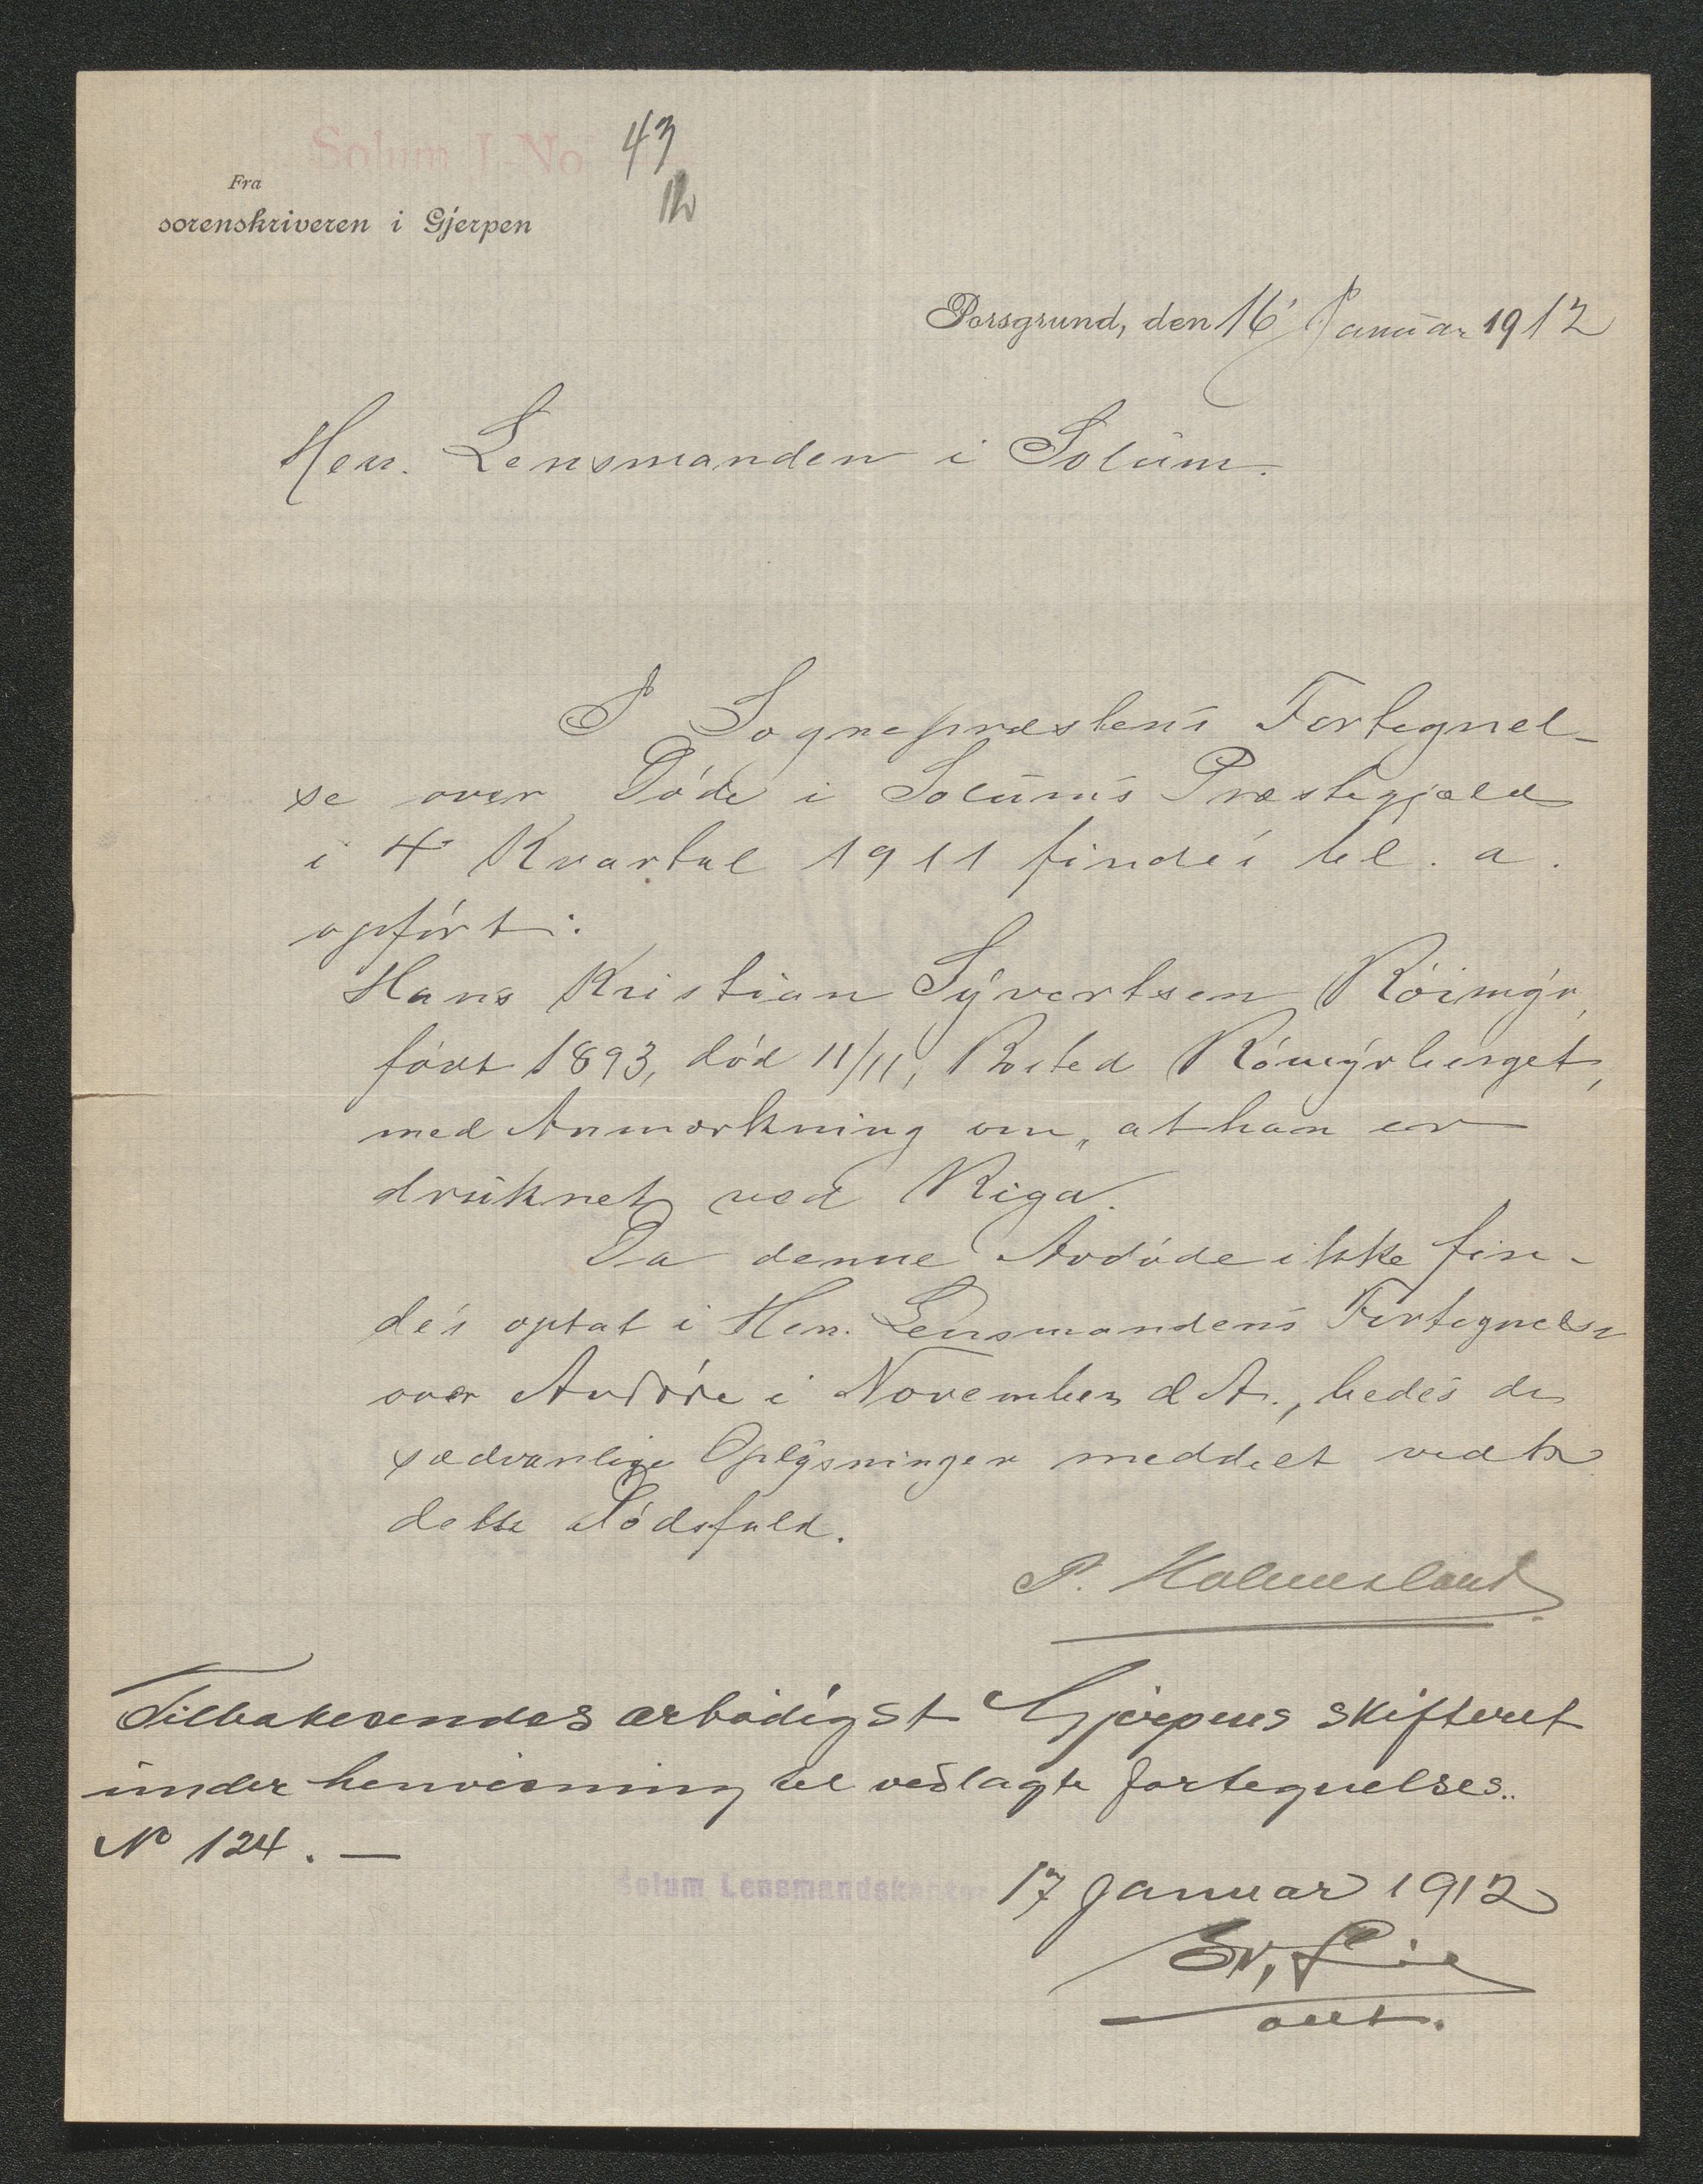 Solum J.-No 43
12
Fra
sorenskriveren i Gjerpen
Porsgrund, den 16' Januar 1912
Herr. Lensmanden i Solum.
I Sogneprestens Fortegnel-
se over Døde i Solums Præstegjæld
i 4' Kvartal 1911 findes bl. a.
opført:
Hans Kristian Syvertsen Röimyr,
født 1893, død 11/11, Bosted Römyrberget,
med Anmerkning om, at han er
druknet ved Riga.
Da denne Avdøde ikke fin-
des optat i Herr. Lensmandens Fortegnelse
over Avdøde i November d. A., bedes de
sædvanlige Oplysninger meddelt vedk
dette Dødsfald.
P. Holmesland
Tilbakesendes ærbødigst Gjerpens skifteret
under henvisning til vedlagte fortegnelses..
No 124. —
Solum Lensmandskontor 17 januar 1912
Sv, Lie
aut.